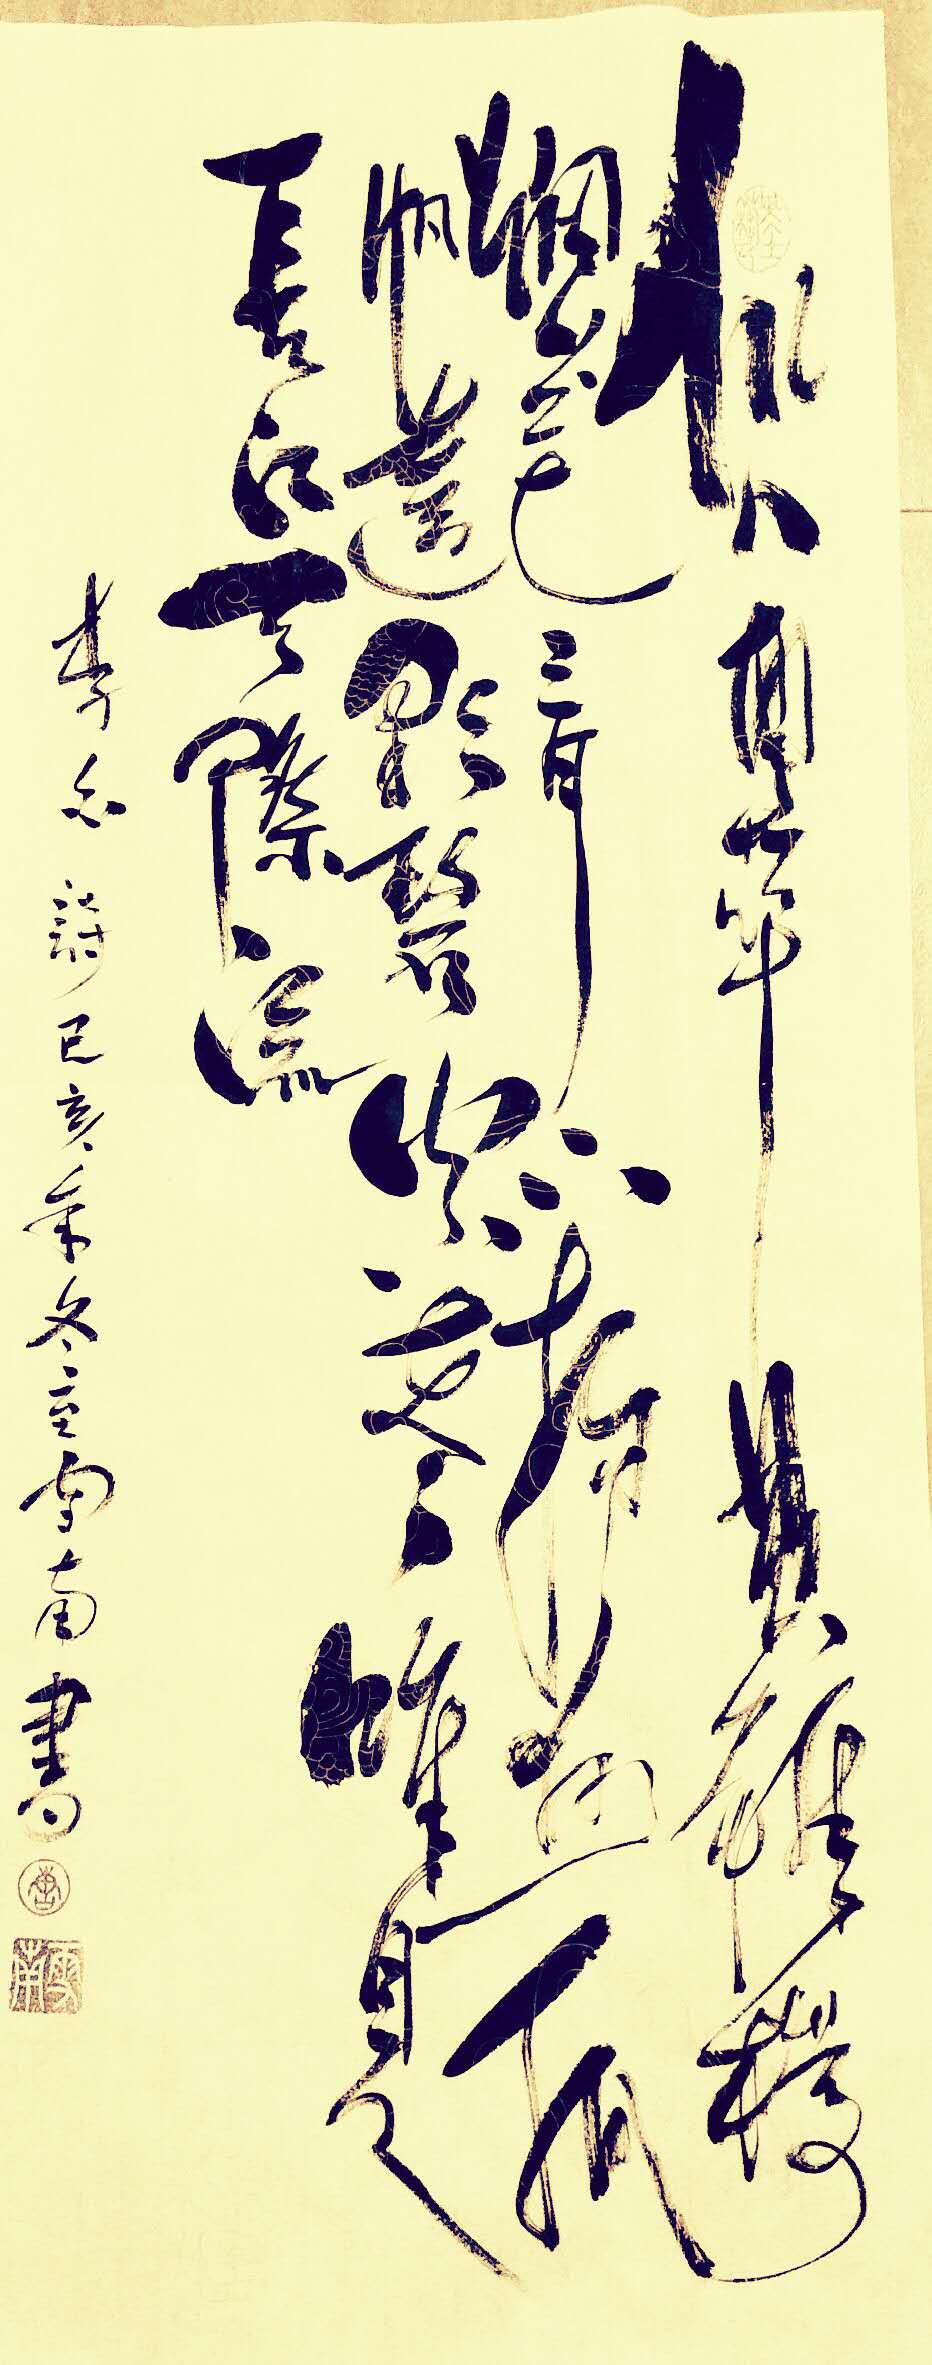 故人西辭黃鶴樓
煙花三月下揚州孤
帆遠影碧空盡唯見
長江天際流
李白詩己亥年冬至雪南書
雪南